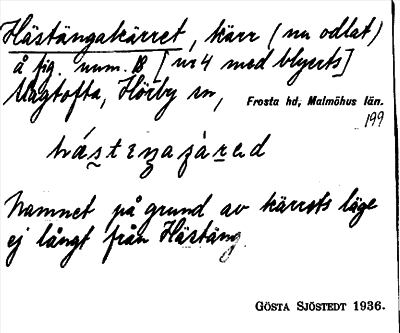 Hästängakärret, kärr (nu odlat)
å fig. num. 18 [nr 4 med blyerts]
Magtofta, Hörby sn, Frosta hd, Malmöhus län.
199
Namnet på grund av kärrets läge
ej långt från Hästäng
GÖSTA SJÖSTEDT 1936.